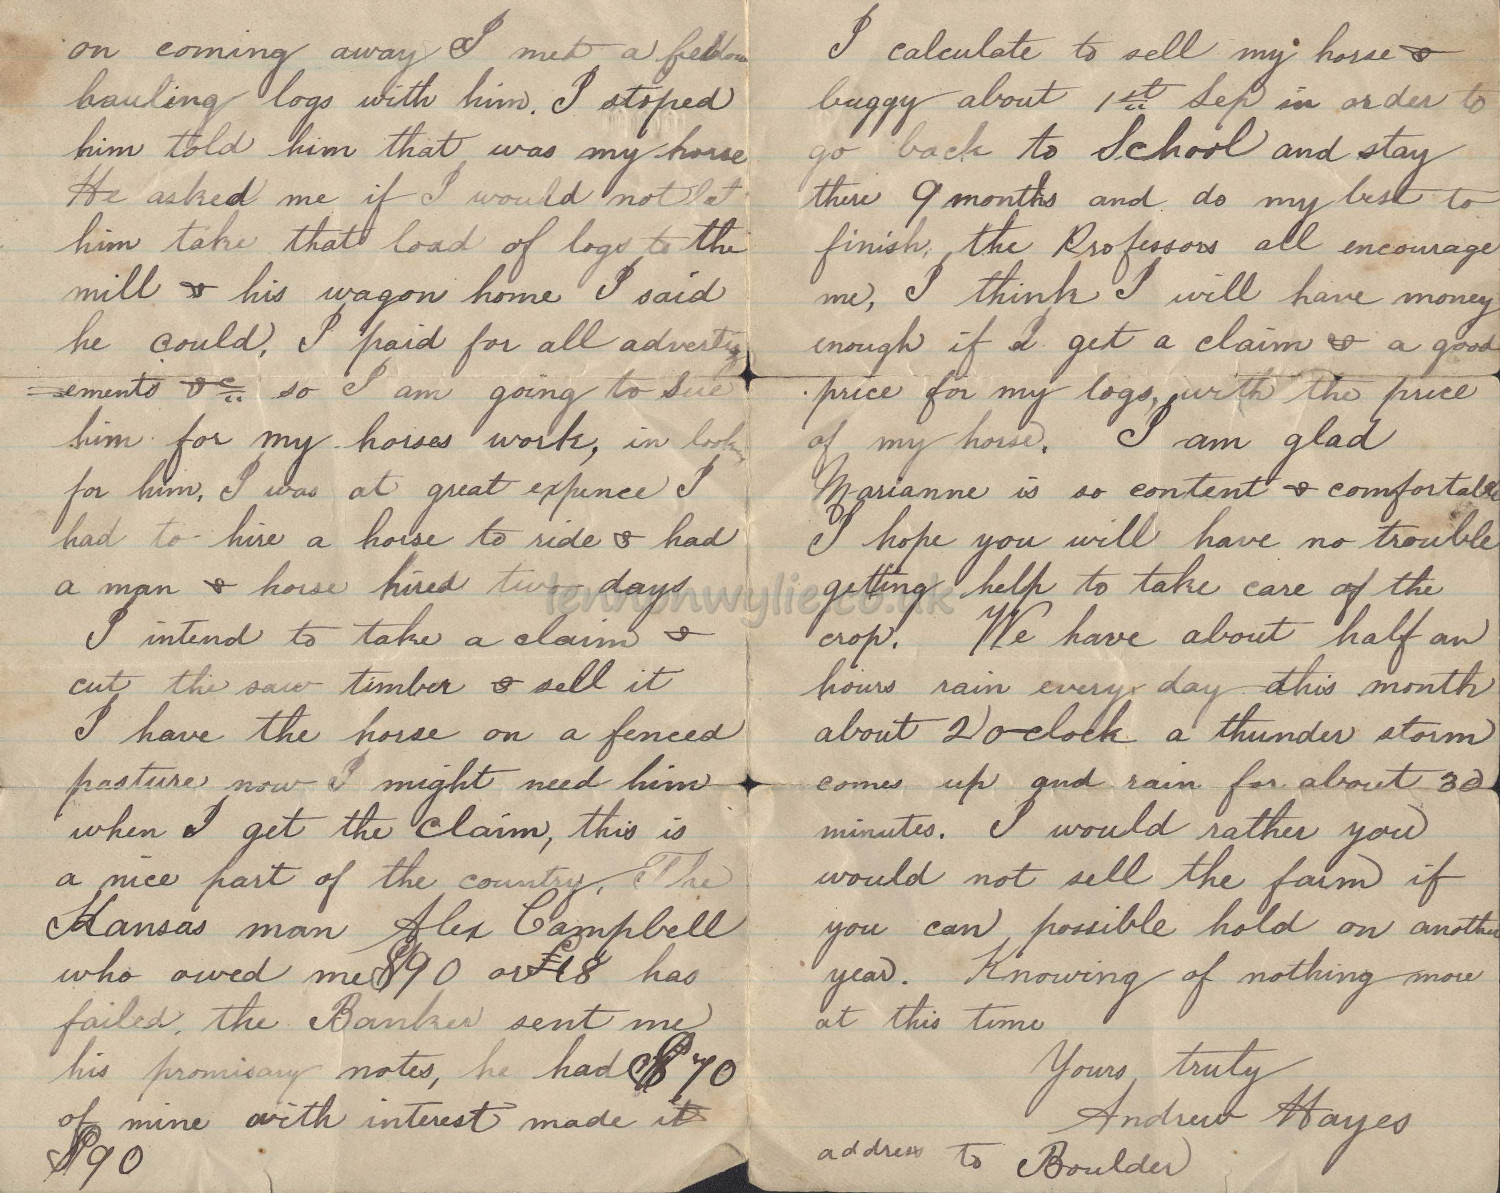 on coming away I met a fellow
hauling logs with him. I stoped
him told him that was my horse
He asked me if I would not let
him take that load of logs to the
mill & his wagon home I said
he could. I paid for all advertis
=ements &c so I am going to sue
him for my horses work, in looking
for him. I was at great expence I
had to hire a horse to ride & had
a man & horse hired two days
I intend to take a claim &
cut the saw timber & sell it
I have the horse on a fenced
pasture now I might need him
when I get the claim, this is
a nice part of the country. The
Kansas man Alex Campbell
who owed me $90 or £18 has
failed, the Banker sent me
his promisary notes, he had $70
of mine with interest made it
$90
I calculate to sell my horse &
buggy about 1st Sep in order to
go back to School and stay
there 9 months and do my best to
finish, the Professors all encourage
me, I think I will have money
enough if I get a claim & a good
price for my logs, with the price
of my horse. I am glad
Marianne is so content & comfortable
I hope you will have no trouble
getting help to take care of the
crop. We have about half an
hours rain every day this month
about 2 o-clock a thunder storm
comes up and rain for about 30
minutes. I would rather you
would not sell the farm if
you can possible hold on another
year. Knowing of nothing more
at this time
Yours truly
Andrew Hayes
address to Boulder
lennonwylie.co.uk